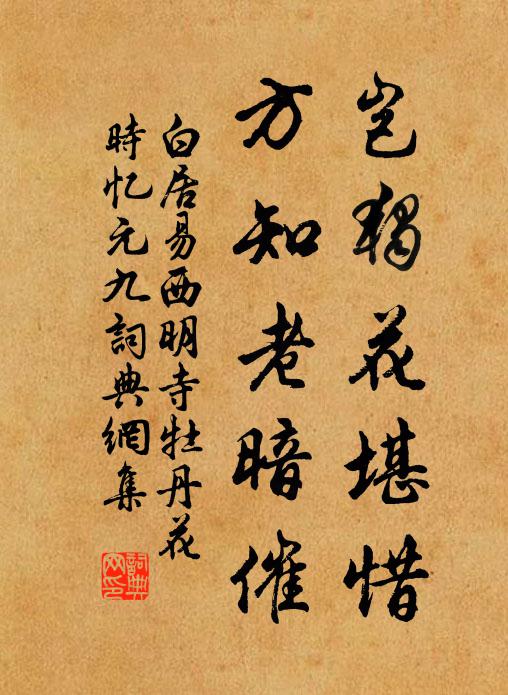 岂独花堪惜
方知老暗催
白居易西明寺牡丹花
時忆元九詞典網集
詞典网印